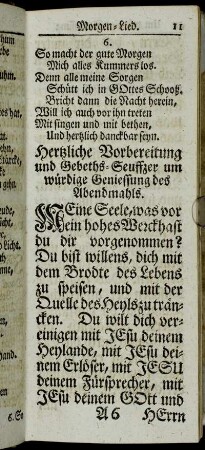 Morgen-Lied. 11
6.
So macht der gute Morgen
Mich alles Kummers los.
Denn alle meine Sorgen
Schütt ich in GOttes Schooß.
Bricht dann die Nacht herein,
Will ich auch vor ihn treten
Mit singen und mit bethen,
Und hertzlich danckbar seyn.
Hertzliche Vorbereitung
und Gebeths-Seuffzer um
würdige Geniessung des
Abendmahls.
MEine Seele, was vor
ein hohes Werck hast
du dir vorgenommen?
Du bist willens, dich mit
dem Brodte des Lebens
zu speisen, und mit der
Quelle des Heyls zu trän-
cken. Du wilt dich ver-
einigen mit JEsu deinem
Heylande, mit JEsu dei-
nem Erlöser, mit JESU
deinem Fürsprecher, mit
JEsu deinem GOtt und
A6 HErrn